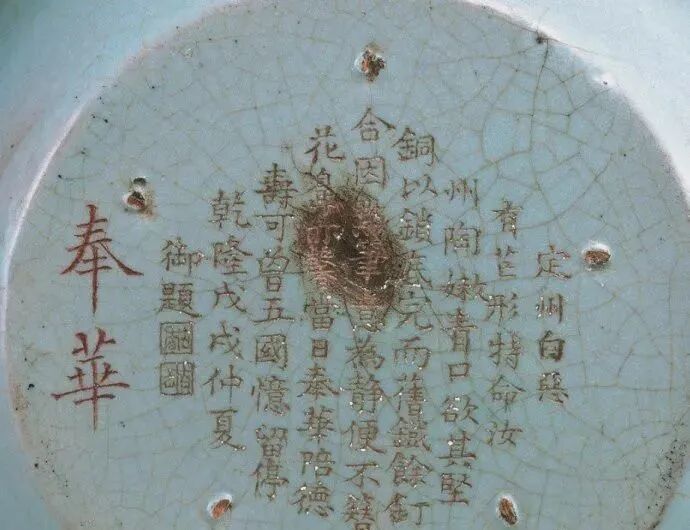 定州白惡
有芒形特命汝
州陶嫩青口欲其堅
銅以鎖底完而舊鐵餘釘
合因筆意為静便不簪
花鼻亦當日奉華陪德
壽可曾五國憶留停
乾隆戊戌仲夏
御題
奉華